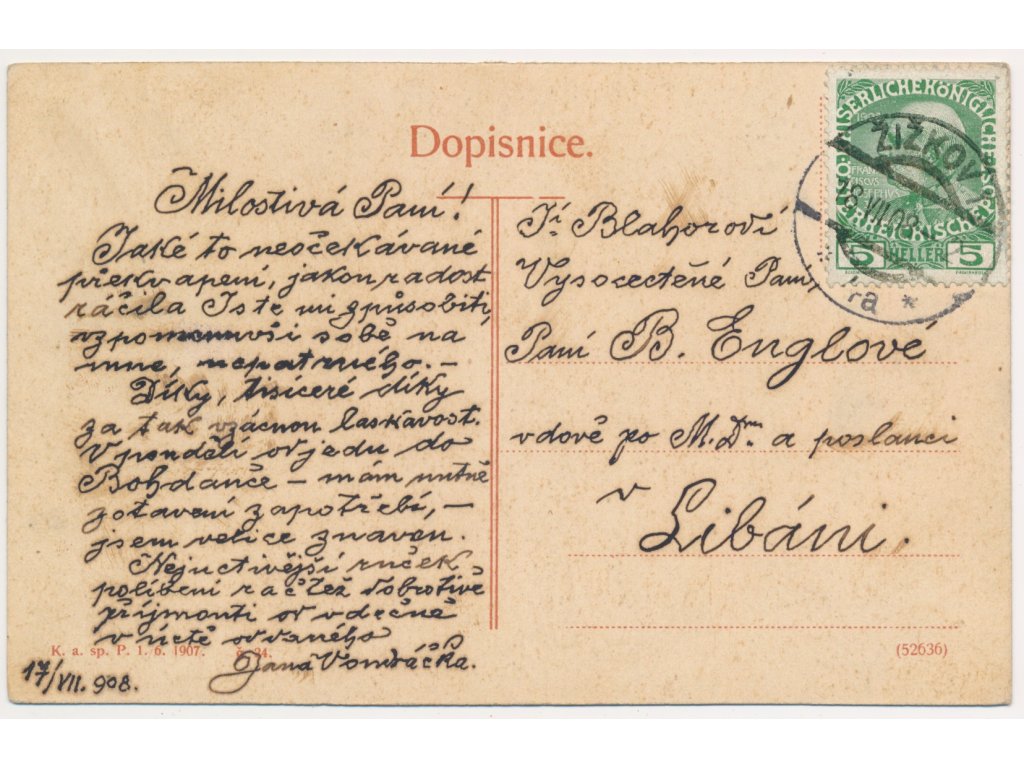 Dopisnice.
Milostivá Paní!
Jaké to neočekávané
překvapení, jakou radost
ráčila Jste mi způsobiti,
vzpomenuvši sobě na
mne, nepatrného. –
Díky, tisíceré díky
za tak vzácnou laskavost.
V pondělí odjedu do
Bohdanče – mám nutně
zotavení zapotřebí, –
jsem velice znaven.
Nejuctivější ruček
políbení račtež dobrotivě
příjmouti od vdečně
v úctě oddaného
Jana Vondráčka.
17/VII. 908.
K. a. sp. P. 1. 6. 1907. č. 24.
Jí Blahorodí
Vysocectěné Paní,
Paní B. Englové
vdově po M.Dru a poslanci
v
Libáni.
(52636)
ŽIŽKOV 1
18 VII 08
5 HELLER 5